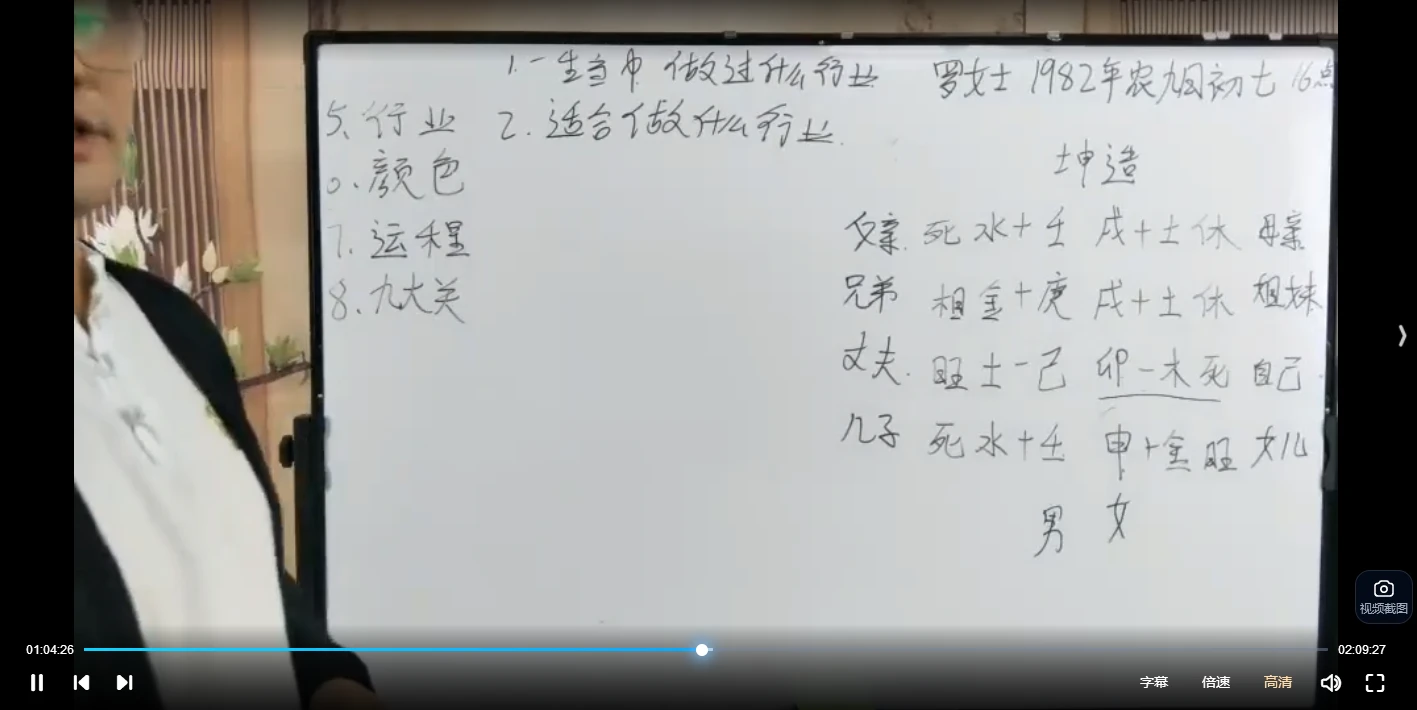 1.一生当中 做过什么行业
罗女士 1982年农九月初七 16点
5、行业
2. 适合做什么行业.
颜色
7. 运程
8. 九大关
坤造
父亲. 死 水+壬 戌+土休 母亲
兄弟 相 金+庚 戌+土休 姐妹
丈夫. 旺土-己 卯-木死 自己
儿子 死水+壬 申+金旺 女儿
男 女
视频截图
01:04:26
02:09:27
字幕 倍速 高清